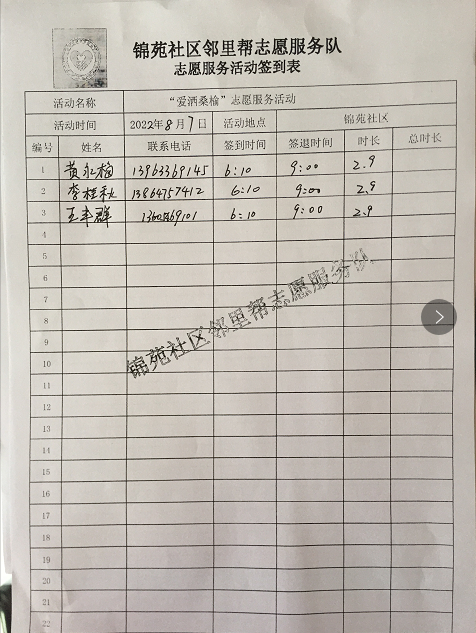 锦苑社区邻里帮志愿服务队
志愿服务活动签到表
活动名称 “爱洒桑榆”志愿服务活动
活动时间 2022年8月7日 活动地点 锦苑社区
编号 姓名 联系电话 签到时间 签退时间 时长 总时长
1 黄永梅 13963369145 6:10 9:00 2.9
2 李桂秋 13864757412 6:10 9:00 2.9
3 王丰群 6:10 9:00 2.9
4
5
6
7
8
9
10
11
12
13
14
15
16
17
18
19
20
21
22
锦苑社区邻里帮志愿服务队